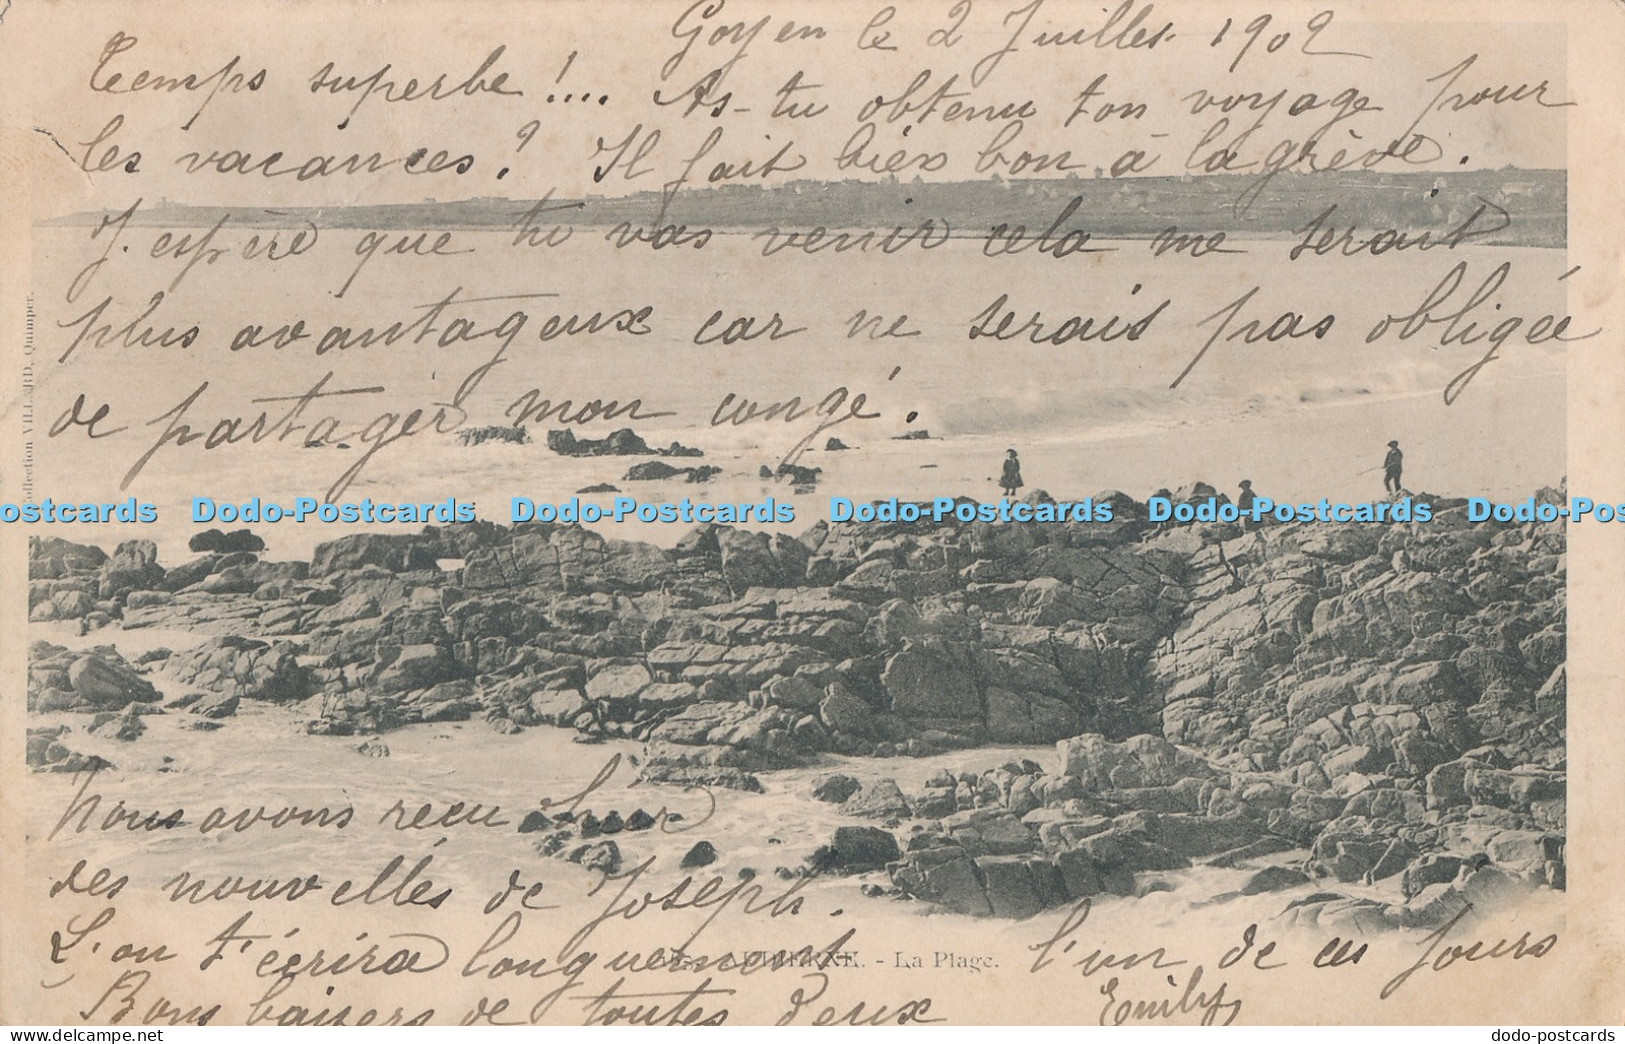 Goyen le 2 Juilles. 1902
Temps superbe !.... As-tu obtenu ton voyage pour
les vacances? Il fait bien bon à la grève.
J'espère que tu vas venir cela me serait
plus avantageux car ne serais pas obligée
de partager mon congé.
Collection VILLARD, Quimper.
Dodo-Postcards Dodo-Postcards Dodo-Postcards Dodo-Postcards
Nous avons reçu hier
des nouvelles de Joseph.
L'on t'écrira longuement l'un de ces jours
AUDIERNE. - La Plage.
Bons baisers de toutes deux Emily
dodo-postcards.com